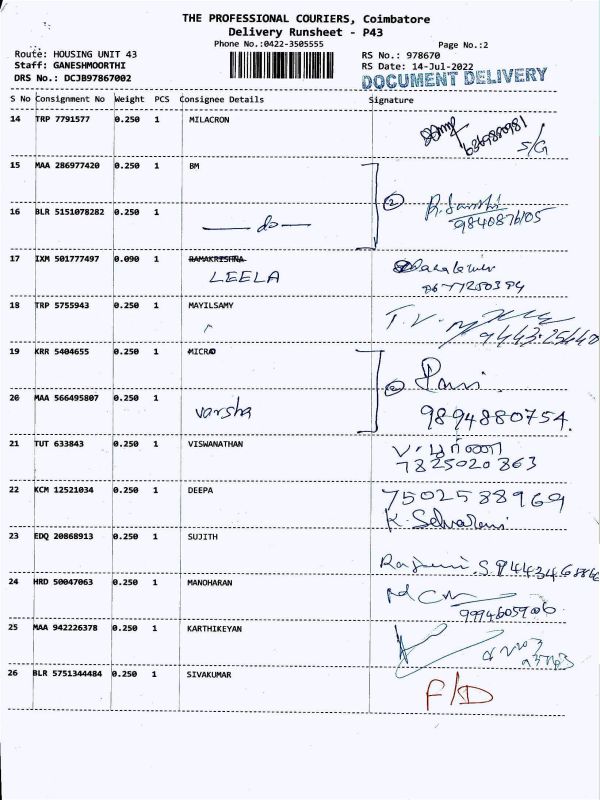 THE PROFESSIONAL COURIERS, Coimbatore
Delivery Runsheet - P43
Phone No.:0422-3505555
Page No.:2
Route: HOUSING UNIT 43
RS No.: 978670
Staff: GANESHMOORTHI
RS Date: 14-Jul-2022
DRS No.: DCJB97867002
DOCUMENT DELIVERY
S No Consignment No Weight PCS Consignee Details Signature
14 TRP 7791577 0.250 1 MILACRON
S/G
15 MAA 286977420 0.250 1 BM
2
16 BLR 5151078282 0.250 1
do
17 IXM 501777497 0.090 1 RAMAKRISHNA
LEELA
18 TRP 5755943 0.250 1 MAYILSAMY
T.V.
19 KRR 5404655 0.250 1 MICRO
2
20 MAA 566495807 0.250 1
varsha 9894880754.
21 TUT 633843 0.250 1 VISWANATHAN
7825020863
22 KCM 12521034 0.250 1 DEEPA 7502588969
K. Selvarani
23 EDQ 20868913 0.250 1 SUJITH
24 HRD 50047063 0.250 1 MANOHARAN
9994605906
25 MAA 942226378 0.250 1 KARTHIKEYAN
26 BLR 5751344484 0.250 1 SIVAKUMAR
F/D